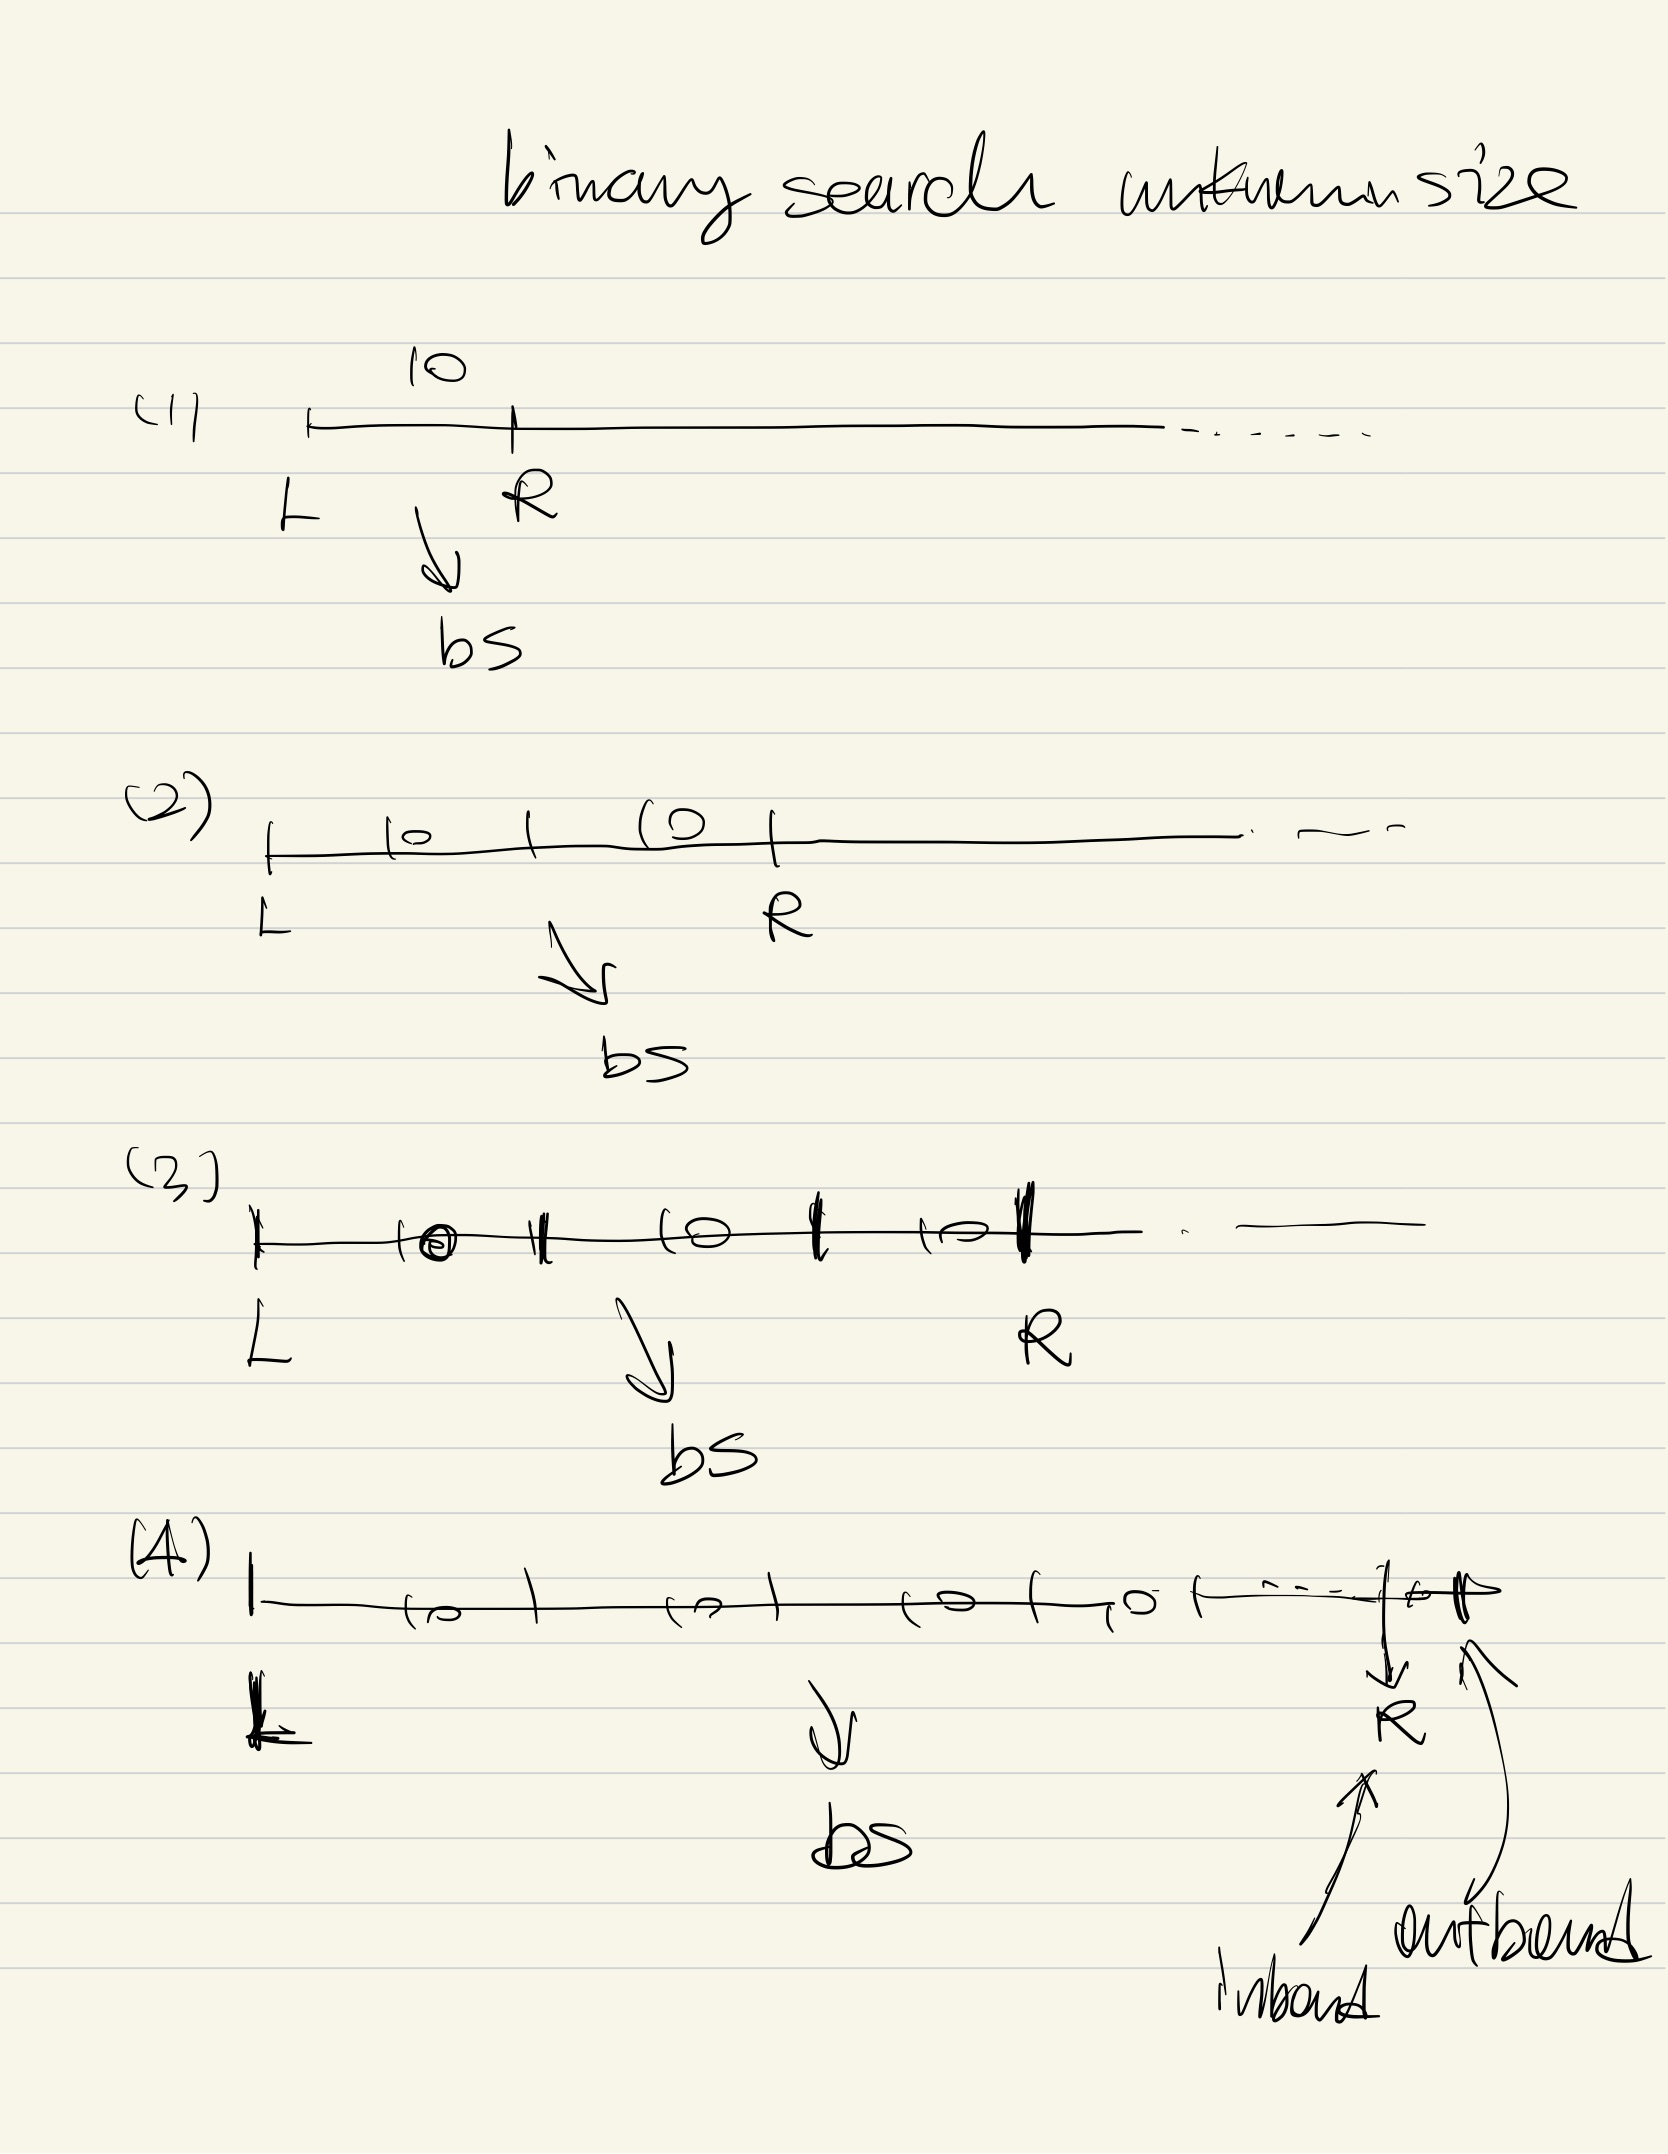 binary search unknown size
10
(1)
L R
bs
(2)
10 10
L R
bs
(3)
10 10 10
L R
bs
(4)
10 10 10 10
L R
bs
outbound
inbound